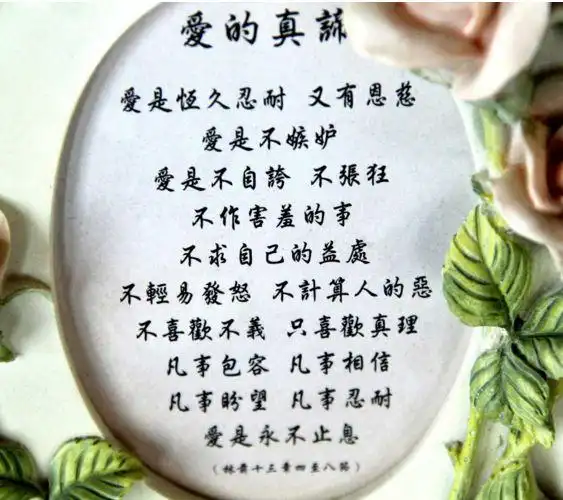 愛的真諦
愛是恆久忍耐 又有恩慈
愛是不嫉妒
愛是不自誇 不張狂
不作害羞的事
不求自己的益處
不輕易發怒 不計算人的惡
不喜歡不義 只喜歡真理
凡事包容 凡事相信
凡事盼望 凡事忍耐
愛是永不止息
(林前十三章四至八節)